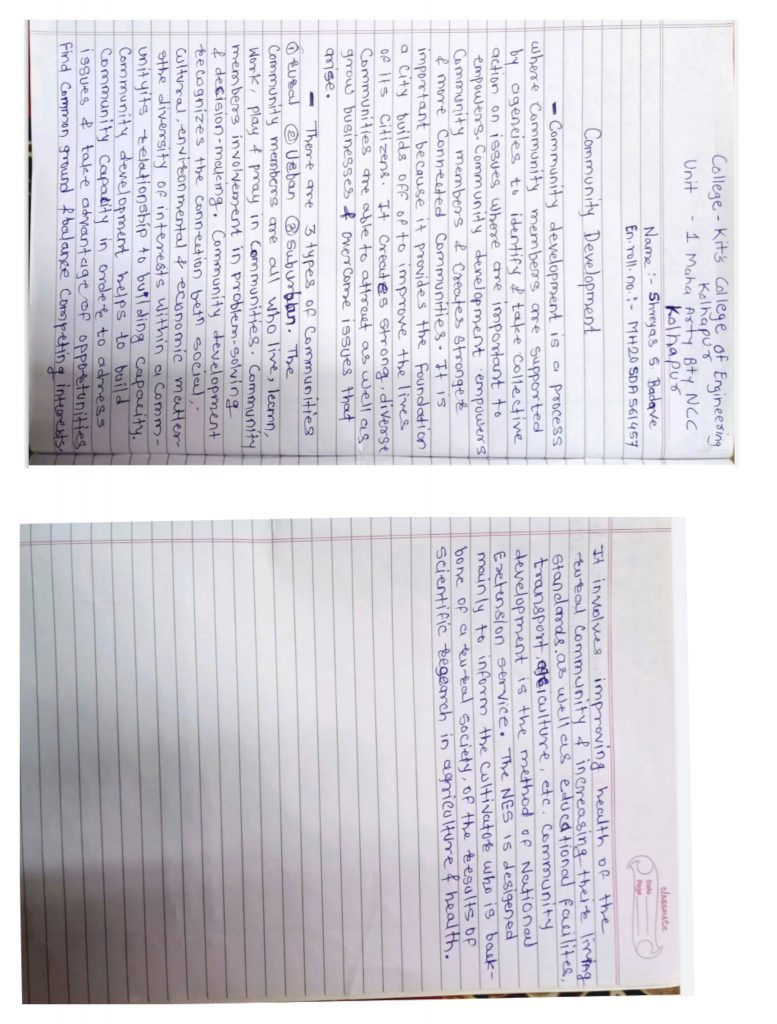 College:- Kit's College of Engineering
Kolhapur
Unit - 1 Maha Arty Bty NCC
Kolhapur
Name :- Shreyas S. Badave
En.roll.no.:- MH20SDA561457
Community Development
- Community development is a process
where Community members are supported
by agencies to identify & take collective
action on issues where are important to
empowers. Community development empowers
Community members & Creates stronger
& more Connected Communities. It is
important because it provides the Foundation
a City builds off of to improve the lives
of its citizens. It Creates strong, diverse
Communities are able to attract as well as
grow businesses & overcome issues that
arise.
- There are 3 types of Communities
① rural ② Urban ③ Suburban. The
Community members are all who live, learn,
work, play & pray in Communities. Community
members involvement in problem-solving
& decision-making. Community development
recognizes the connection betn social,
Cultural, environmental & economic matter-
s the diversity of interests within a Comm-
unityits relationship to building Capacity.
Community development helps to build
Community Capacity in order to adress
issues & take advantage of opportunities
Find Common ground & balance Competing interests.
classmate
Date
Page
It involves improving health of the
rural Community & increasing their living
standards. as well as educational facilites,
transport, agriculture, etc. Community
development is the method of National
Extension service. The NES is desigened
mainly to inform the Cultivator who is back-
bone of a rural society, of the results of
scientific regearch in agriculture & health.